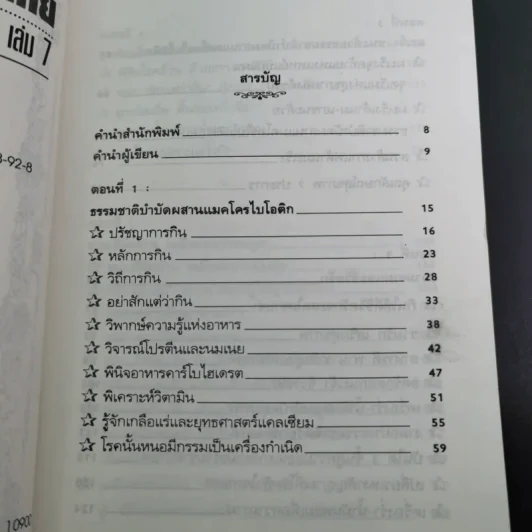 เล่ม 7
3-92-8
10900
สารบัญ
คำนำสำนักพิมพ์ 8
คำนำผู้เขียน 9
ตอนที่ 1 :
ธรรมชาติบำบัดผสานแมคโครไบโอติก 15
ปรัชญาการกิน 16
หลักการกิน 23
วิถีการกิน 28
อย่าสักแต่ว่ากิน 33
วิพากษ์ความรู้แห่งอาหาร 38
วิจารณ์โปรตีนและนมเนย 42
พินิจอาหารคาร์โบไฮเดรต 47
พิเคราะห์วิตามิน 51
รู้จักเกลือแร่และยุทธศาสตร์แคลเซียม 55
โรคนั้นหนอมีกรรมเป็นเครื่องกำเนิด 59